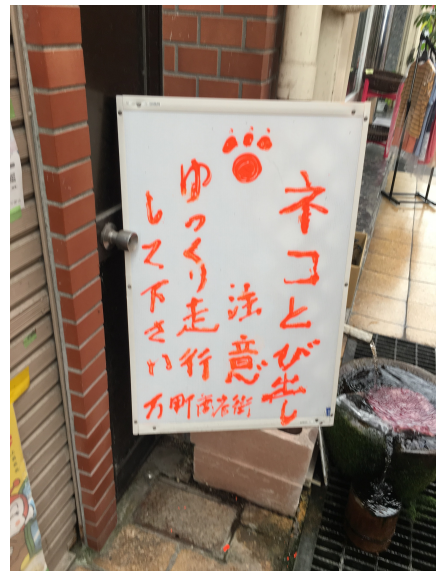 ネコとび出し
注意
ゆっくり走行
して下さい
万町商店街